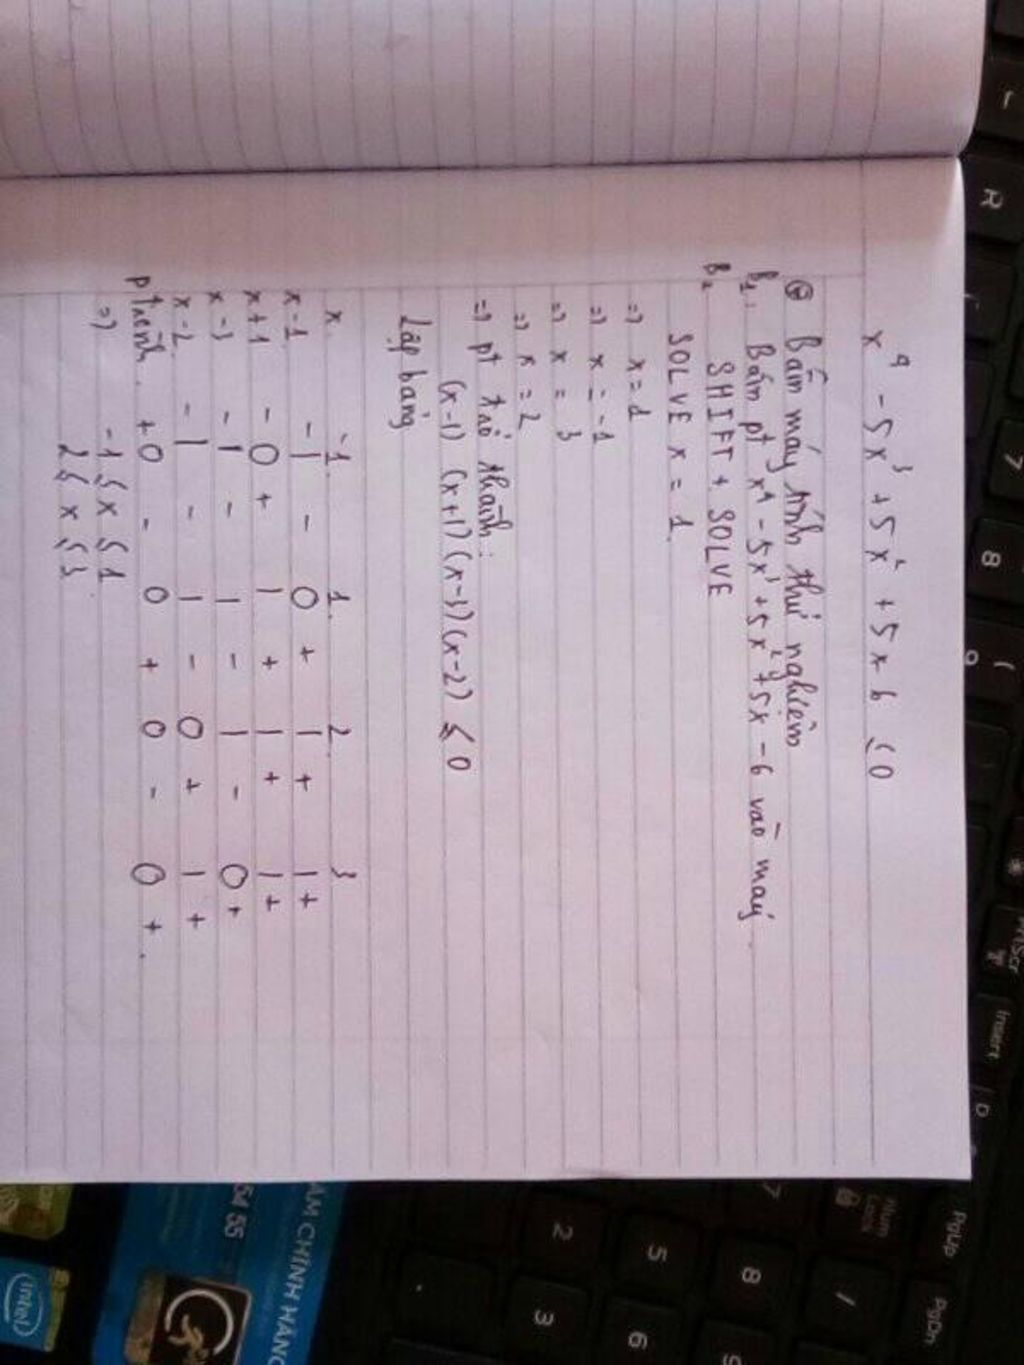 x⁴ - 5x³ + 5x² + 5x - 6 ≤ 0
Bấm máy tính thử nghiệm
B1: Bấm pt x⁴ - 5x³ + 5x² + 5x - 6 vào máy.
B2 SHIFT + SOLVE
SOLVE x = 1
=> x = 1
=> x = -1
=> x = 3
=> x = 2
=> pt trở thành:
(x-1) (x+1) (x-3) (x-2) ≤ 0
Lập bảng
x -1 1 2 3
x-1 - | - 0 + | + | +
x+1 - 0 + | + | + | +
x-3 - | - | - | - 0 +
x-2 - | - | - 0 + | +
+ 0 - 0 + 0 - 0 +
=> -1 ≤ x ≤ 1
2 ≤ x ≤ 3
R
7
8
9
(
Insert
PgUp
PgDn
Num Lock
7
8
/
5
6
2
3
CHÍNH HÃNG
intel